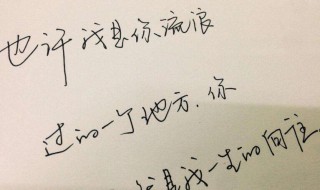 也许我是你流浪
过的一个地方.你
是我一生的向往